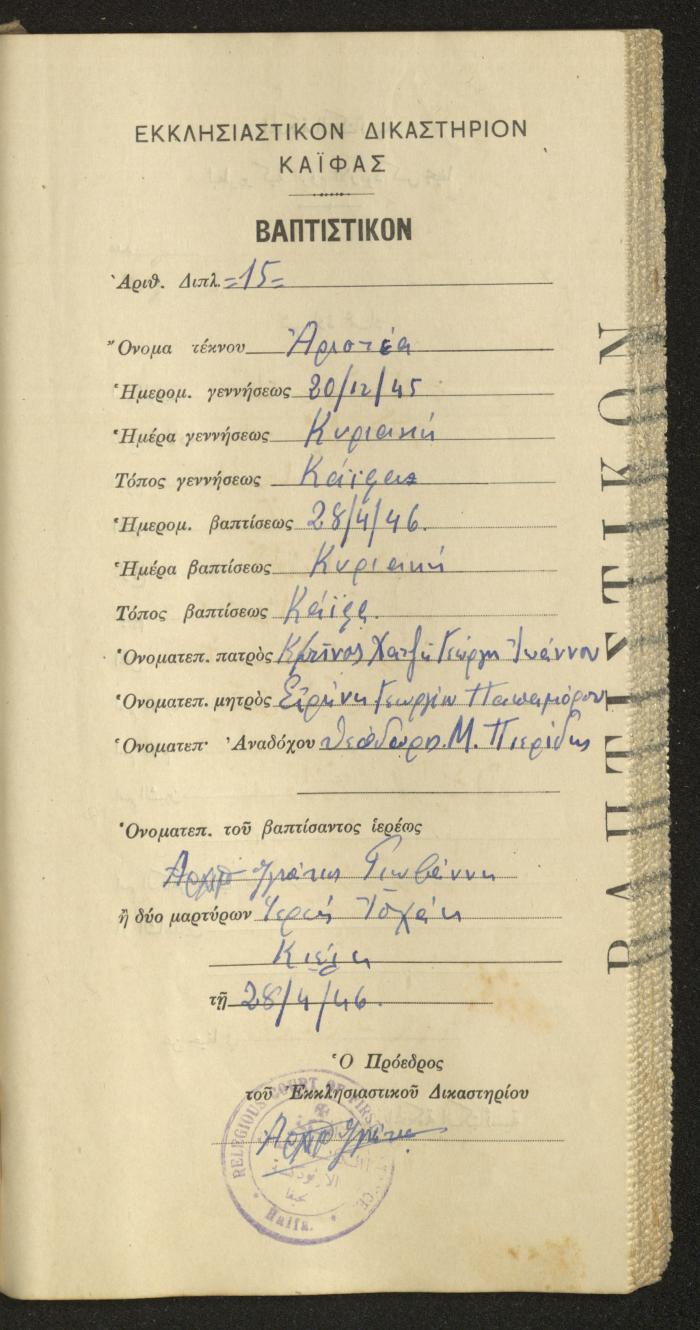 ΕΚΚΛΗΣΙΑΣΤΙΚΟΝ ΔΙΚΑΣΤΗΡΙΟΝ
ΚΑΪΦΑΣ
ΒΑΠΤΙΣΤΙΚΟΝ
Ἀριθ. Διπλ. =15=
Ὄνομα τέκνου Ἀριστέα
Ἡμερομ. γεννήσεως 20/12/45
Ἡμέρα γεννήσεως Κυριακή
Τόπος γεννήσεως Κάϊφας
Ἡμερομ. βαπτίσεως 28/4/46.
Ἡμέρα βαπτίσεως Κυριακή
Τόπος βαπτίσεως Κάϊφα.
Ὀνοματεπ. πατρὸς Χατζῆ Γεώργη Ἰωάννου
Ὀνοματεπ. μητρὸς Εἰρήνη Γεωργίου
Ὀνοματεπ· Ἀναδόχου Μ. Πιερίδης
Ὀνοματεπ. τοῦ βαπτίσαντος ἱερέως
ἢ δύο μαρτύρων Ἰσχάκ
τῇ 28/4/46.
Ὁ Πρόεδρος
τοῦ Ἐκκλησιαστικοῦ Δικαστηρίου
RELEGIOUS COURT OF FIRST
Haifa.
ΒΑΠΤΙΣΤΙΚΟΝ